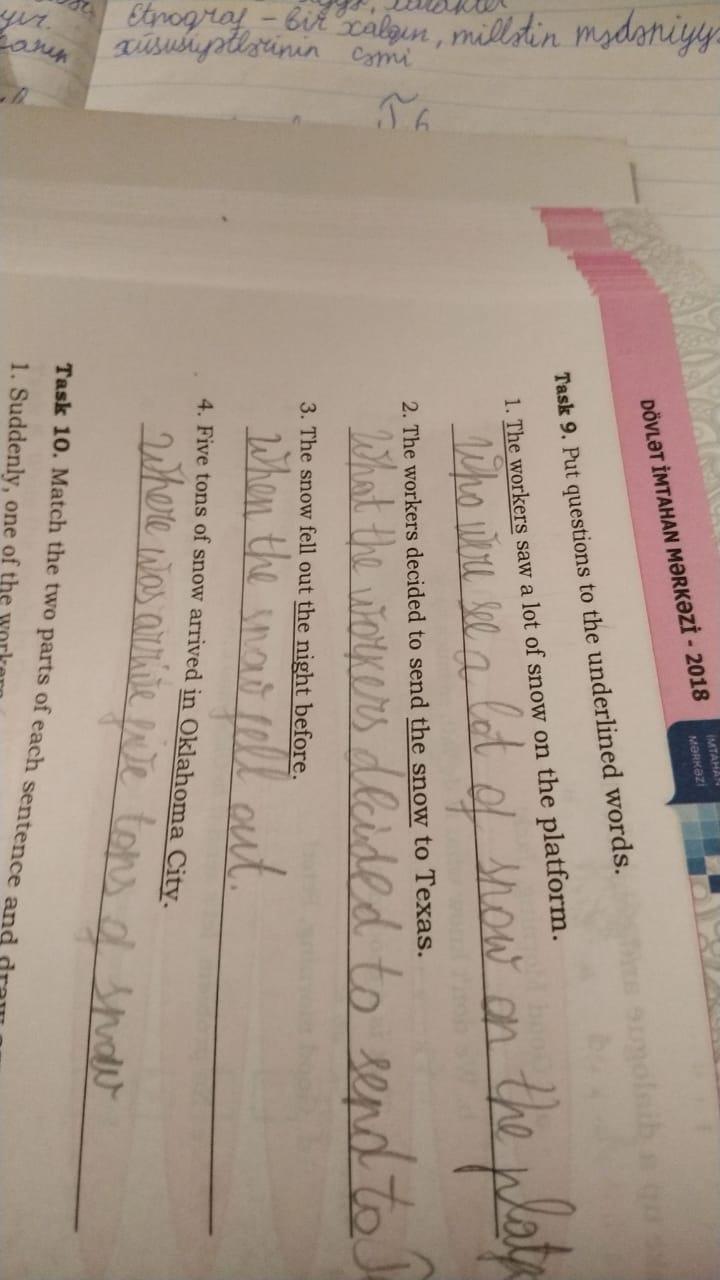 Etnoqraf - bir xalqın, millətin mədəniyyə
xüsusiyətlərinin cəmi
DÖVLƏT İMTAHAN MƏRKƏZİ - 2018
İMTAHAN
MƏRKƏZİ
Task 9. Put questions to the underlined words.
1. The workers saw a lot of snow on the platform.
Who were see a lot of snow on the platf
2. The workers decided to send the snow to Texas.
What the workers decided to send to T
3. The snow fell out the night before.
When the snow fell out.
4. Five tons of snow arrived in Oklahoma City.
Where was arrive five tons of snow
Task 10. Match the two parts of each sentence and draw
1. Suddenly, one of the workers